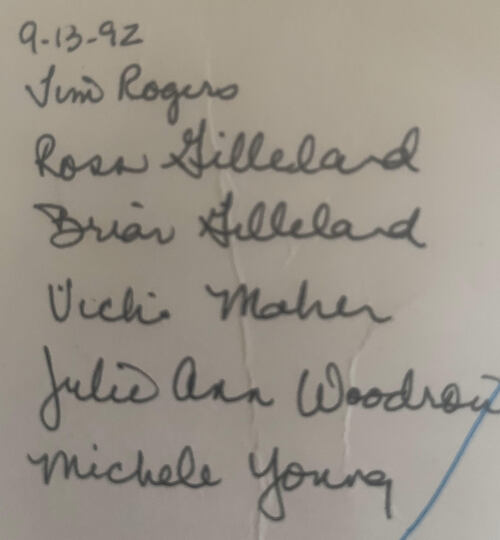 9-13-92
Jim Rogers
Rosa Gilleland
Brian Gilleland
Vicki Maher
Julie Ann Woodrow
Michele Young